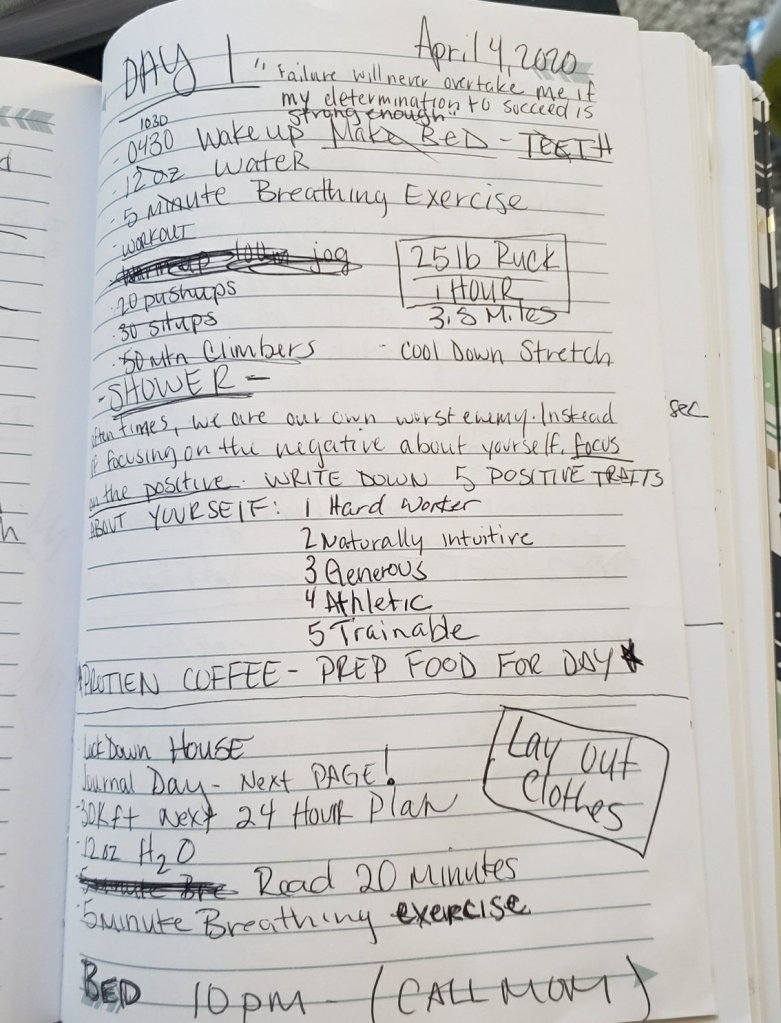 April 4, 2020
DAY 1
" Failure will never overtake me if
my determination to succeed is
strong enough"
1030
- 0430 Wake up Make BED - TEETH
- 12 oz WateR
- 5 Minute Breathing Exercise
- WORKOUT
warmup 400m jog
25 lb Ruck
1 HOUR
3.8 Miles
- 20 pushups
- 30 situps
- 50 Mtn Climbers
- Cool Down Stretch
- SHOWER -
often times, we are our own worst enemy. Instead
of focusing on the negative about yourself, focus
on the positive. WRITE DOWN 5 POSITIVE TRAITS
ABOUT YOURSElF: 1 Hard Worker
2 Naturally intuitive
3 Generous
4 Athletic
5 Trainable
PROTIEN COFFEE - PREP FOOD FOR DAY
Lock Down HOUSE
Journal Day - Next PAGE!
- 30Kft Next 24 Hour Plan
Lay out
Clothes
- 12oz H2O
5 minute Bre Read 20 Minutes
- 5 minute Breathing exercise
BED 10 pm - (CALL MOM)
sec